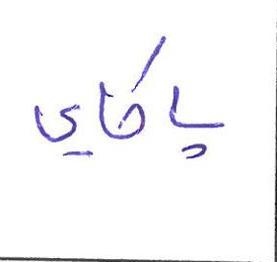 پاكاي